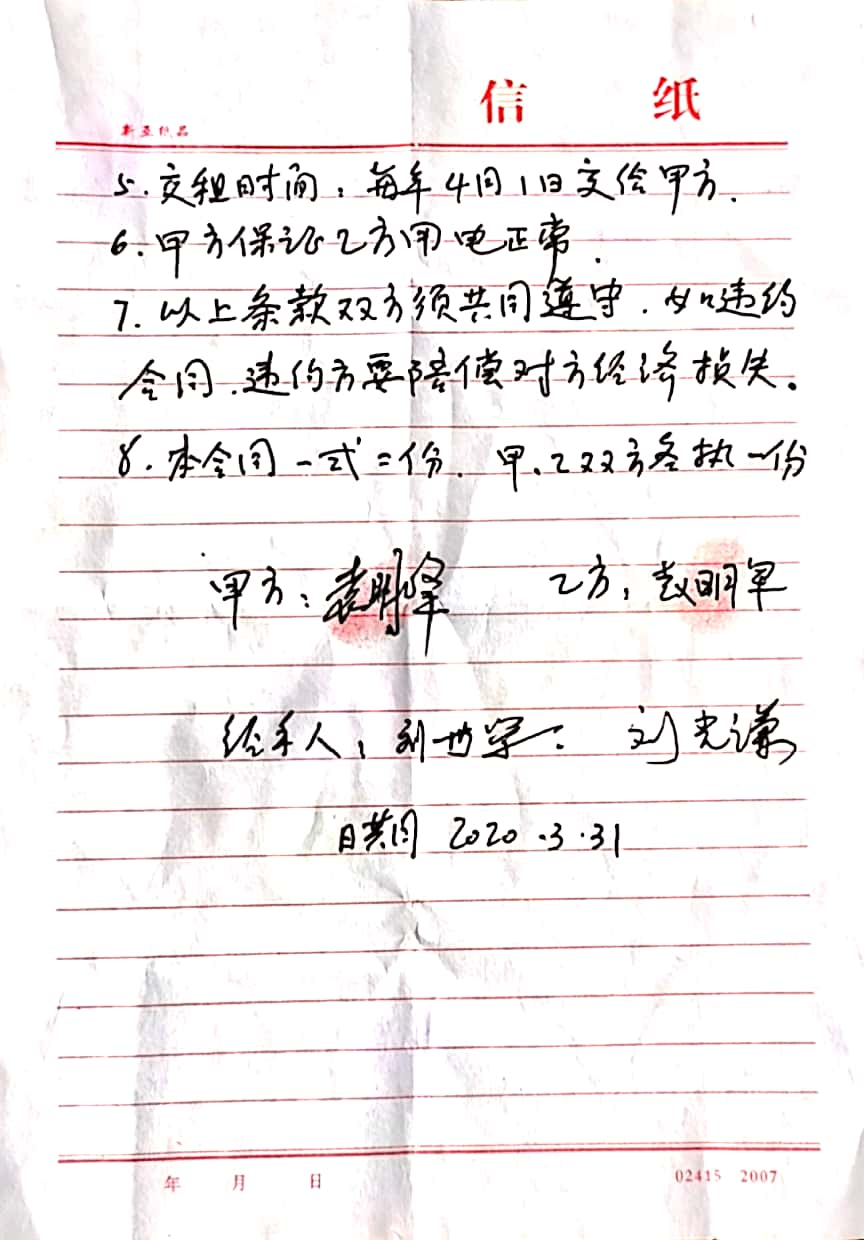 信 纸
新亚纸品
5.交租时间:每年4月1日交给甲方.
6.甲方保证乙方用电正常.
7.以上条款双方须共同遵守.如违约
合同.违约方要赔偿对方经济损失。
8.本合同一式二份.甲、乙双方各执一份
甲方:袁明峰 乙方:赵明军
经手人:刘世军 刘光谦
日期 2020.3.31
年 月 日 02415 2007